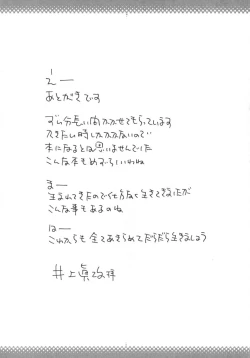 えー
あとがきです
ずい分長い間かかせてもらっています
できたい時しかかかないので
本になるとは思いませんでした
こんな本もめずらしいわね
まー
生まれてきたので仕方なく生きてきましたが
こんな事もあるのね
はー
これからも全てあきらめてだらだら生きましょう
井上眞改拝